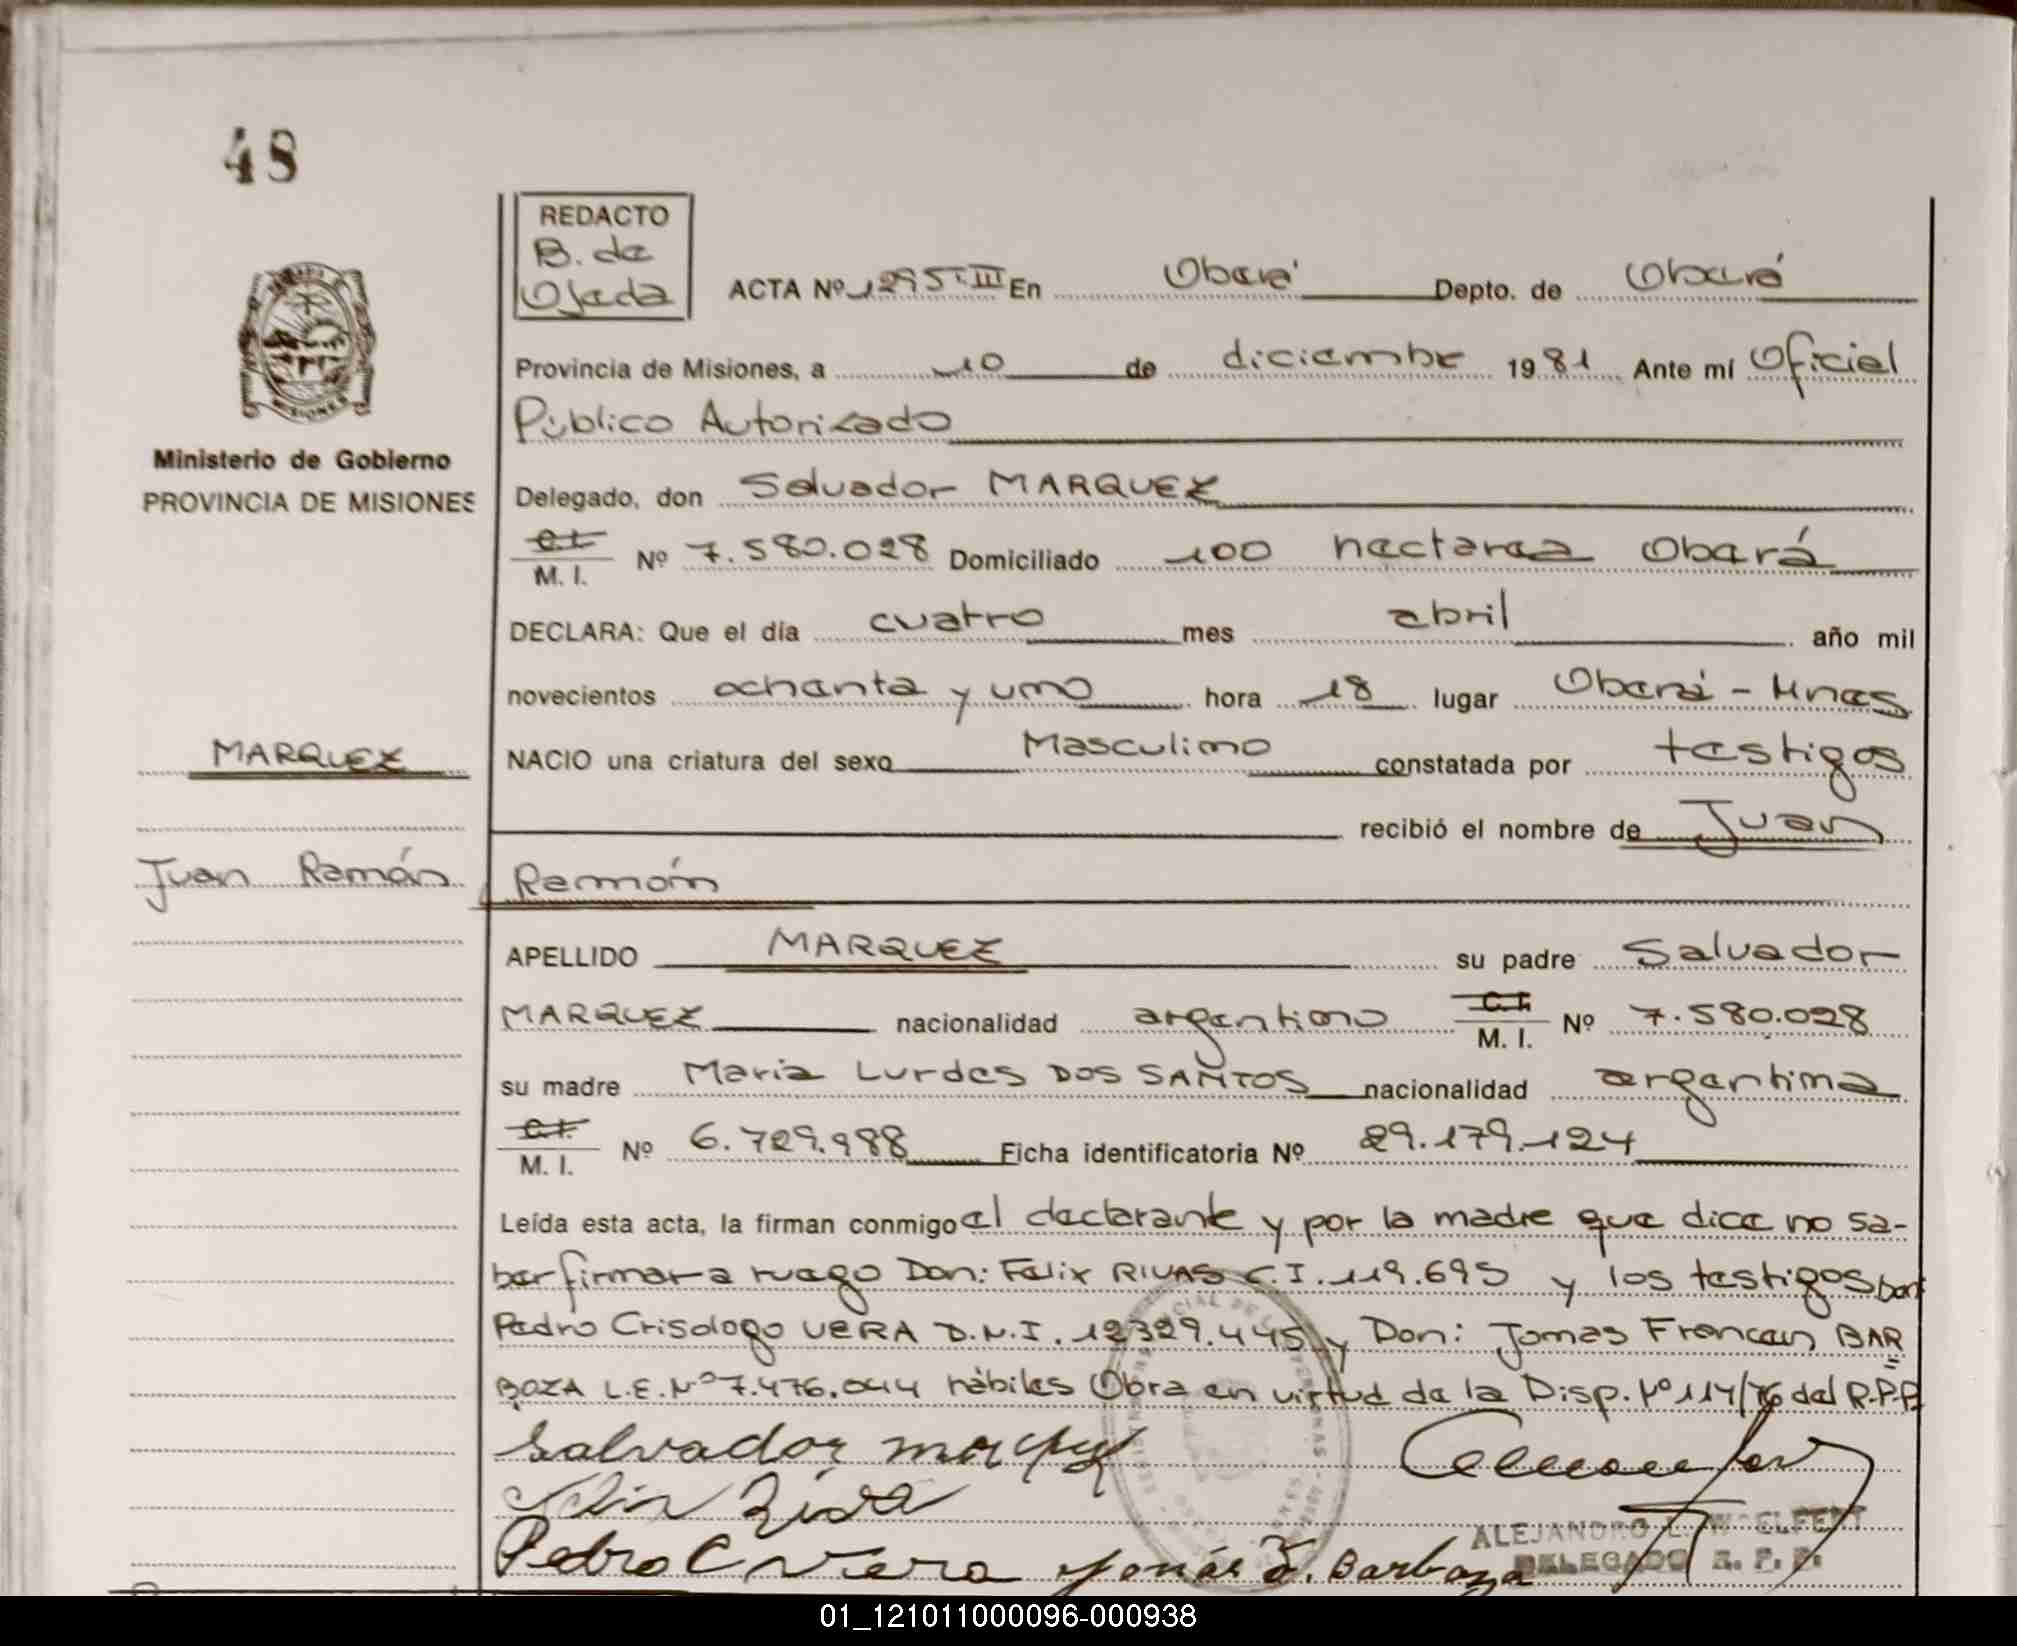 48
REDACTO
B. de
Ojeda
ACTA Nº 1295-III En Oberá Depto. de Oberá
Provincia de Misiones, a 10 de diciembre 1981 Ante mí Oficial
Público Autorizado
Ministerio de Gobierno
PROVINCIA DE MISIONES
Delegado, don Salvador MARQUEZ
C.I.
M. I. Nº 7.580.028 Domiciliado 100 hectarea Oberá
DECLARA: Que el día cuatro mes abril año mil
novecientos ochenta y uno hora 18 lugar Oberá - Mnes
MARQUEZ
NACIO una criatura del sexo Masculino constatada por testigos
recibió el nombre de Juan
Juan Ramón
Ramón
APELLIDO MARQUEZ su padre Salvador
MARQUEZ nacionalidad argentino C.I. M. I. Nº 7.580.028
su madre Maria Lurdes DOS SANTOS nacionalidad argentina
C.I.
M. I. Nº 6.729.988 Ficha identificatoria Nº 29.179.124
Leída esta acta, la firman conmigo el declarante y por la madre que dice no sa-
ber firmar a ruego Don: Felix RIVAS C.I. 119.695 y los testigos Don:
Pedro Crisologo VERA D.N.I. 12329.445 y Don: Tomas Francan BAR
BOZA L.E. Nº 7.476.044 hábiles Obra en virtud de la Disp. Nº 114/76 del R.P.P.
Salvador Marquez
Pedro C Vera Tomás F. Barboza
ALEJANDRO
DELEGADO R. P. P.
01_121011000096-000938